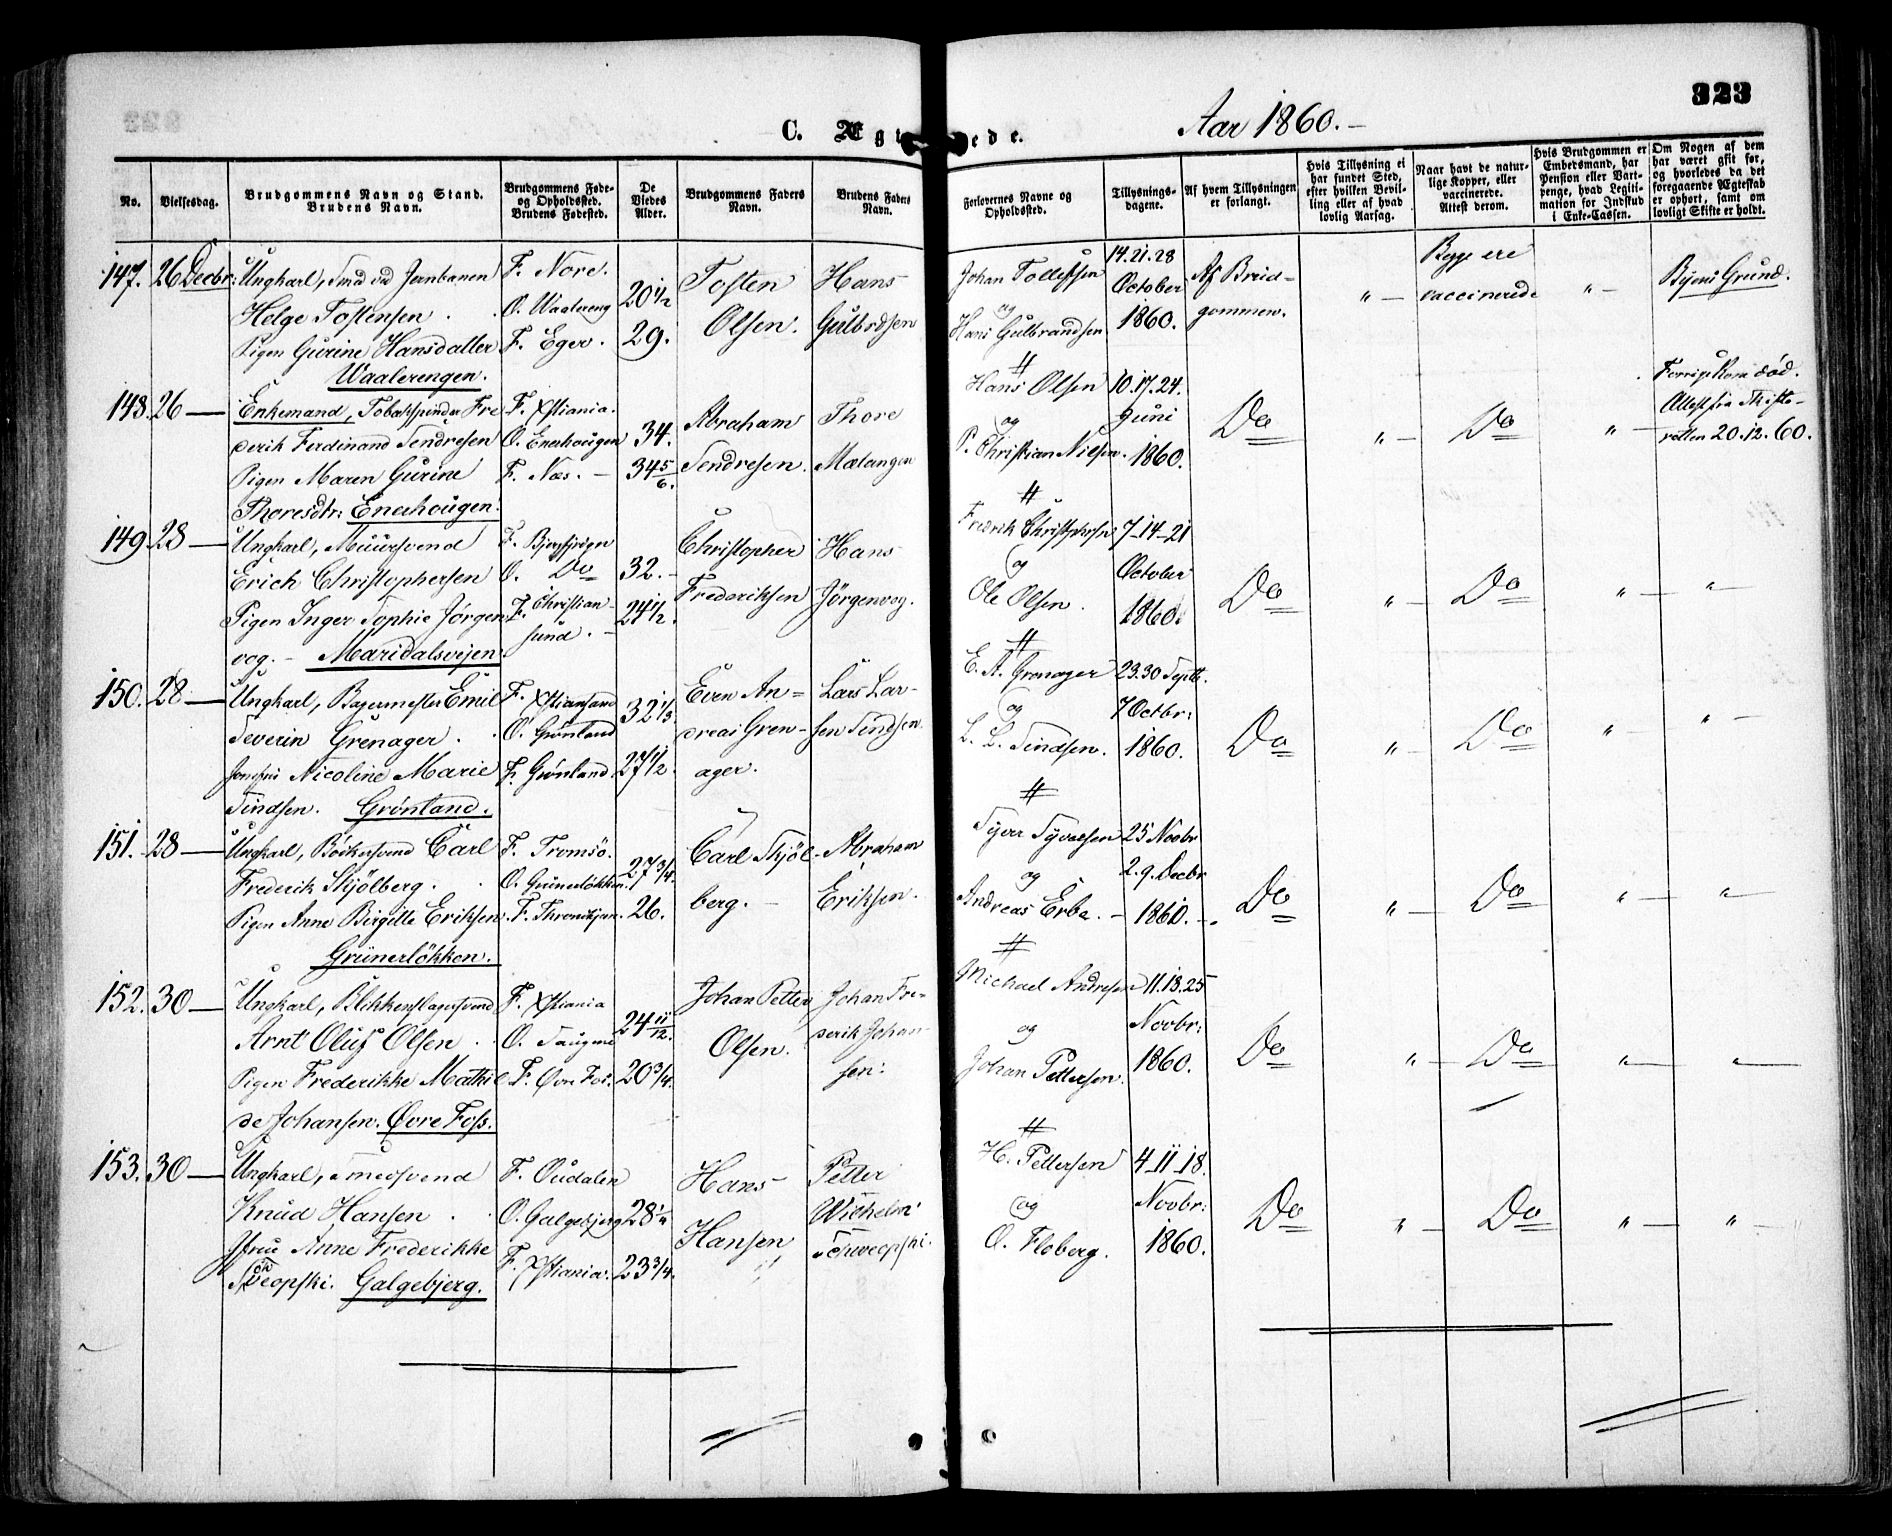 323
C. Ægteviede.
Aar 1860.-
No.
Vielsesdag.
Brudgommens Navn og Stand.
Brudens Navn.
Brudgommens Føde-
og Opholdssted.
Brudens Fødested.
De
Viedes
Alder.
Brudgommens Faders
Navn.
Brudens Faders
Navn.
Forlovernes Navne og
Opholdssted.
Tillysnings-
dagene.
Af hvem Tillysningen
er forlangt.
Hvis Tillysning ei
har fundet Sted,
efter hvilken Bevil-
ling eller af hvad
lovlig Aarsag.
Naar havt de natur-
lige Kopper, eller
vaccinerede.
Attest derom.
Hvis Brudgommen er
Embedsmand, har
Pension eller Vart-
penge, hvad Legiti-
mation for Indskud
i Enke-Cassen.
Om Nogen af dem
har været gift før,
og hvorledes da det
foregaaende Ægteskab
er ophørt, samt om
lovligt Skifte er holdt.
147. 26 Decbr: Ungkarl, Smed ved Jernbanen
Helge Tostensen.
Pigen Gurine Hansdatter
Waalerengen.
F. Nore.
O. Waalereng
F. Eger.
20 1/2
29.
Tosten
Olsen.
Hans
Gulbrdsen
Johan Tollefsen
og
Hans Gulbrandsen
14. 21. 28
October
1860.
Af Brud-
gommen.
" -
Begge ere
vaccinerede
" -
Byens Grund.
148. 26 - Enkemand, Tobaksspinder Fre
derik Ferdinand Sendresen
Pigen Maren Gurine
Thoresdtr: Enerhougen.
F. Xstiania.
O. Enerhougen
F. Næs. -
34.
34 5/6.
Abraham
Sendresen.
Thore
Mælangen
Hans Olsen
og
P. Christian Nielsen.
10. 17. 24.
Juni
1860.
Do
" -
Do
" -
Forrige Kone død.
Attest fra Skifte-
retten 20. 12. 60.
149. 28 - Ungkarl, Muursvend
Erich Christophersen
Pigen Inger Sophie Jørgen
vog. - Maridalsvejen
O. Do
F. Christian-
sund. -
32. -
24 1/2.
Christopher
Frederiksen
Hans
Jørgenvog.
Fredrik Christophersen
og
Ole Olsen.
7-14-21
October
1860.
Do
" -
Do
" -
" -
150. 28 - Ungkarl, Bagermester Emil
Severin Grenager.
Jomfru Nicoline Marie
Sindsen. Grønland.
F. Xstiansand
O. Grønland
F. Grønland.
32 1/3.
27 1/2.
Even An-
dreas Gren-
ager.
Lars Lar-
sen Sindsen.
E. A. Grenager
og
L. L. Sindsen.
23. 30 Septb.
7 Octbr:
1860.
Do
" -
Do
" -
" -
151. 28 - Ungkarl, Bødkersvend Carl
Frederik Skjølberg.
Pigen Anne Birgitte Eriksen.
Grünerløkken.
F. Tromsø.
O. Grünerløkken.
F. Throndhjem.
27 3/4.
26.
Carl Skjøl-
berg. -
Abraham
Eriksen.
Syver Syversen
og
Andreas Erbe. -
25 Novbr
2. 9. Decbr
1860. -
Do
" -
Do
" -
" -
152. 30 - Ungkarl, Blikkenslagersvend
Arnt Oluf Olsen.
Pigen Frederikke Mathil
de Johansen. Øvre Foss.
F. Xstiania
O. Saugene
F. Øvre Fos.
24 11/12.
20 3/4.
Johan Petter
Olsen.
Johan Fre-
derik Johan-
sen.
Michael Andresen
og
Johan Pettersen.
11. 18. 25
Novbr:
1860.
Do
" -
Do
" -
" -
153. 30 - Ungkarl, Smedsvend
Knud Hansen.
Jfru Anne Frederikke
Galgebjerg.
F. Oudalen
O. Galgebjerg
F. Xstiania.
23 3/4.
Hans
Hansen
Petter
Wilhelm
H. Pettersen
og
O. Floberg.
4-11-18.
Novbr:
1860.
Do
" -
Do
" -
" -